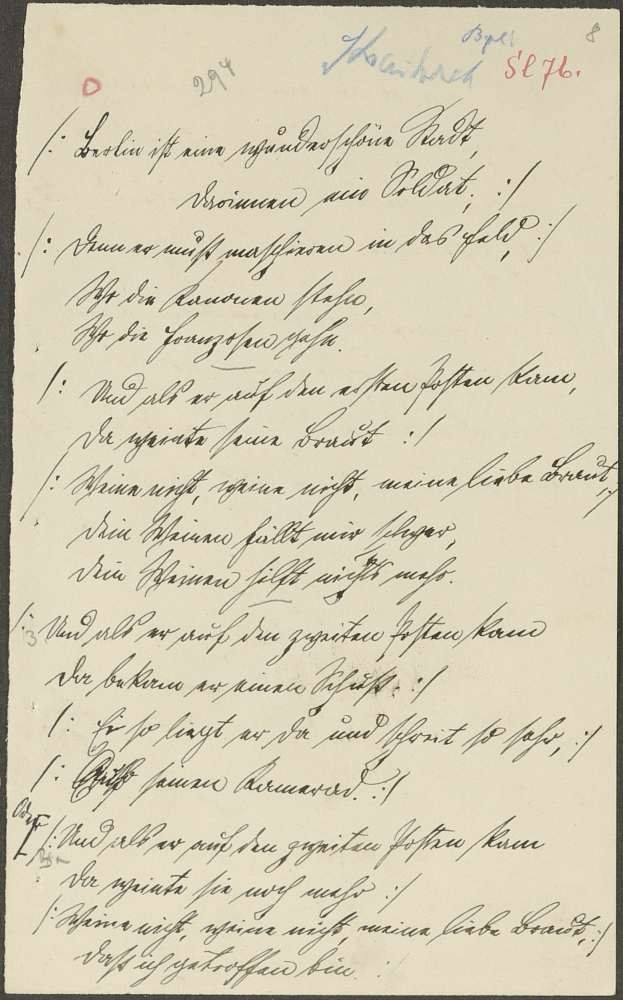 8
294
Sl 76.
/: Berlin ist eine wunderschöne Stadt,
Darinnen ein Soldat; :/
/: Denn er muß maschieren in das Feld, :/
Wo die Kanonen stehn,
Wo die Franzosen gehn.
/: Und als er auf den ersten Posten kam,
Da weinte seine Braut :/
/: Weine nicht, weine nicht, meine liebe Braut, :/
Dein Weinen fällt mir schwer,
Dein Weinen hilft nichts mehr.
/: 3 Und als er auf den zweiten Posten kam
Da bekam er einen Schuß. :/
/: Ei so liegt er da und schreit so sehr, :/
/: seinen Kamerad. :/
Oder
/: Und als er auf den zweiten Posten kam
Da weinte sie noch mehr :/
/: Weine nicht, weine nicht, meine liebe Braut, :/
Daß ich getroffen bin.